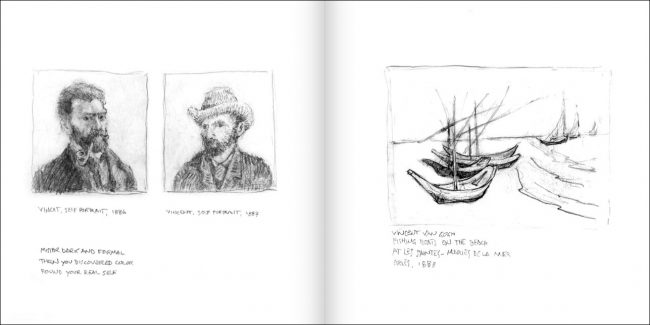 VINCENT, SELF PORTRAIT, 1886
VINCENT, SELF PORTRAIT, 1887
MISTER DARK AND FORMAL
THEN YOU DISCOVERED COLOR
FOUND YOUR REAL SELF
VINCENT VAN GOGH
FISHING BOATS ON THE BEACH
AT LES SAINTES-MARIES DE LA MER
1888